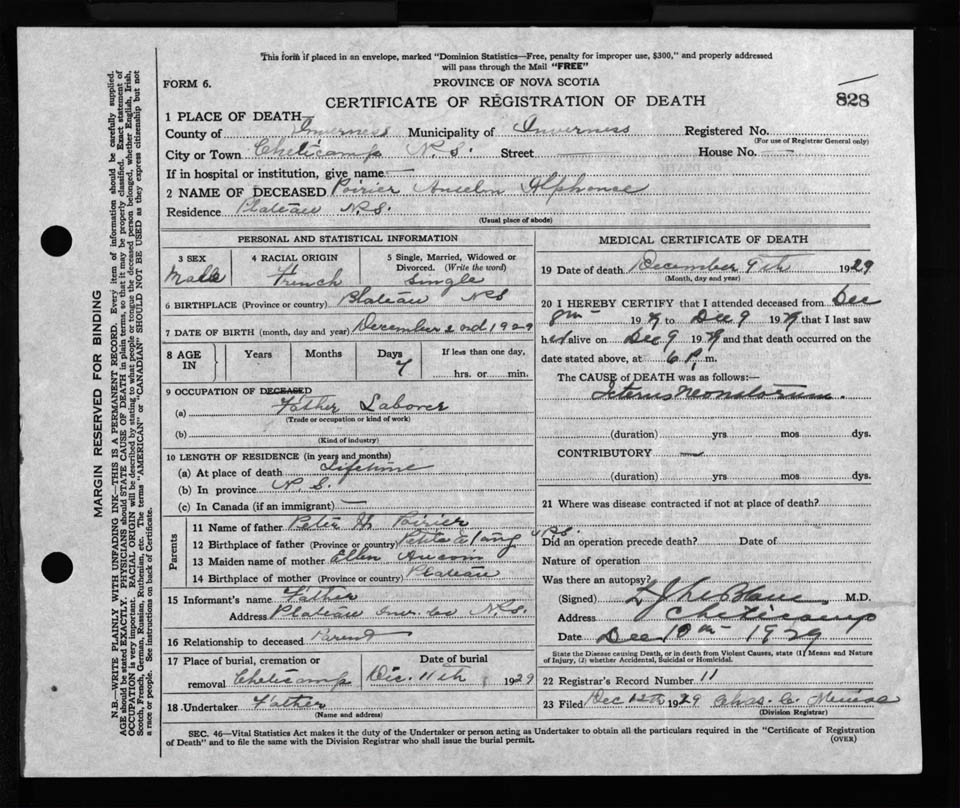 This form if placed in an envelope, marked "Dominion Statistics—Free, penalty for improper use, $300," and properly addressed
will pass through the Mail "FREE"
FORM 6.
PROVINCE OF NOVA SCOTIA
CERTIFICATE OF REGISTRATION OF DEATH
828
1 PLACE OF DEATH
County of Inverness Municipality of Inverness Registered No.
(For use of Registrar General only)
City or Town Cheticamp N.S. Street — House No. —
If in hospital or institution, give name —
2 NAME OF DECEASED Poirier Anselm Alphonce
Residence Plateau N.S.
(Usual place of abode)
PERSONAL AND STATISTICAL INFORMATION
3 SEX
Male
4 RACIAL ORIGIN
French
5 Single, Married, Widowed or
Divorced. (Write the word)
Single
6 BIRTHPLACE (Province or country) Plateau NS
7 DATE OF BIRTH (month, day and year) December 2nd 1929
8 AGE
IN
Years
Months
Days
7
If less than one day,
hrs. or min.
9 OCCUPATION OF DECEASED
(a) Father Laborer
(Trade or occupation or kind of work)
(b)
(Kind of industry)
10 LENGTH OF RESIDENCE (in years and months)
(a) At place of death Lifetime
(b) In province N.S.
(c) In Canada (if an immigrant) —
Parents
11 Name of father Peter H Poirier
12 Birthplace of father (Province or country) Petite Etang NS.
13 Maiden name of mother Ellen Aucoin
14 Birthplace of mother (Province or country) Plateau
15 Informant's name Father
Address Plateau Inv. Co N.S.
16 Relationship to deceased Parent
17 Place of burial, cremation or
removal Cheticamp
Date of burial
Dec. 11th 1929
18 Undertaker Father
(Name and address)
MEDICAL CERTIFICATE OF DEATH
19 Date of death December 9th 1929
(Month, day and year)
20 I HEREBY CERTIFY that I attended deceased from Dec
8th 1929 to Dec 9 1929 that I last saw
him alive on Dec 9 1929 and that death occurred on the
date stated above, at 6 P. m.
The CAUSE of DEATH was as follows:—
Icterus Neonatorum.
(duration) yrs mos dys.
CONTRIBUTORY —
(duration) yrs mos dys.
21 Where was disease contracted if not at place of death?
Did an operation precede death? Date of
Nature of operation
Was there an autopsy?
(Signed) L J LeBlanc M.D.
Address Cheticamp
Date Dec 10th 1929
State the Disease causing Death, or in death from Violent Causes, state (1) Means and Nature
of Injury, (2) whether Accidental, Suicidal or Homicidal.
22 Registrar's Record Number 11
23 Filed Dec 12th 1929 Chas. C
(Division Registrar)
SEC. 46—Vital Statistics Act makes it the duty of the Undertaker or person acting as Undertaker to obtain all the particulars required in the "Certificate of Registration
of Death" and to file the same with the Division Registrar who shall issue the burial permit.
(OVER)
MARGIN RESERVED FOR BINDING
N.B.—WRITE PLAINLY WITH UNFADING INK—THIS IS A PERMANENT RECORD. Every item of information should be carefully supplied.
AGE should be stated EXACTLY. PHYSICIANS should STATE CAUSE OF DEATH in plain terms, so that it may be properly classified. Exact statement of
OCCUPATION is very important. RACIAL ORIGIN will be described by stating to what people or tongue the deceased person belonged, whether English, Irish,
Scotch, French, German, Russian, Ruthenian, etc. The terms "AMERICAN" or "CANADIAN" SHOULD NOT BE USED as they express citizenship but not
a race or people. See instructions on back of Certificate.